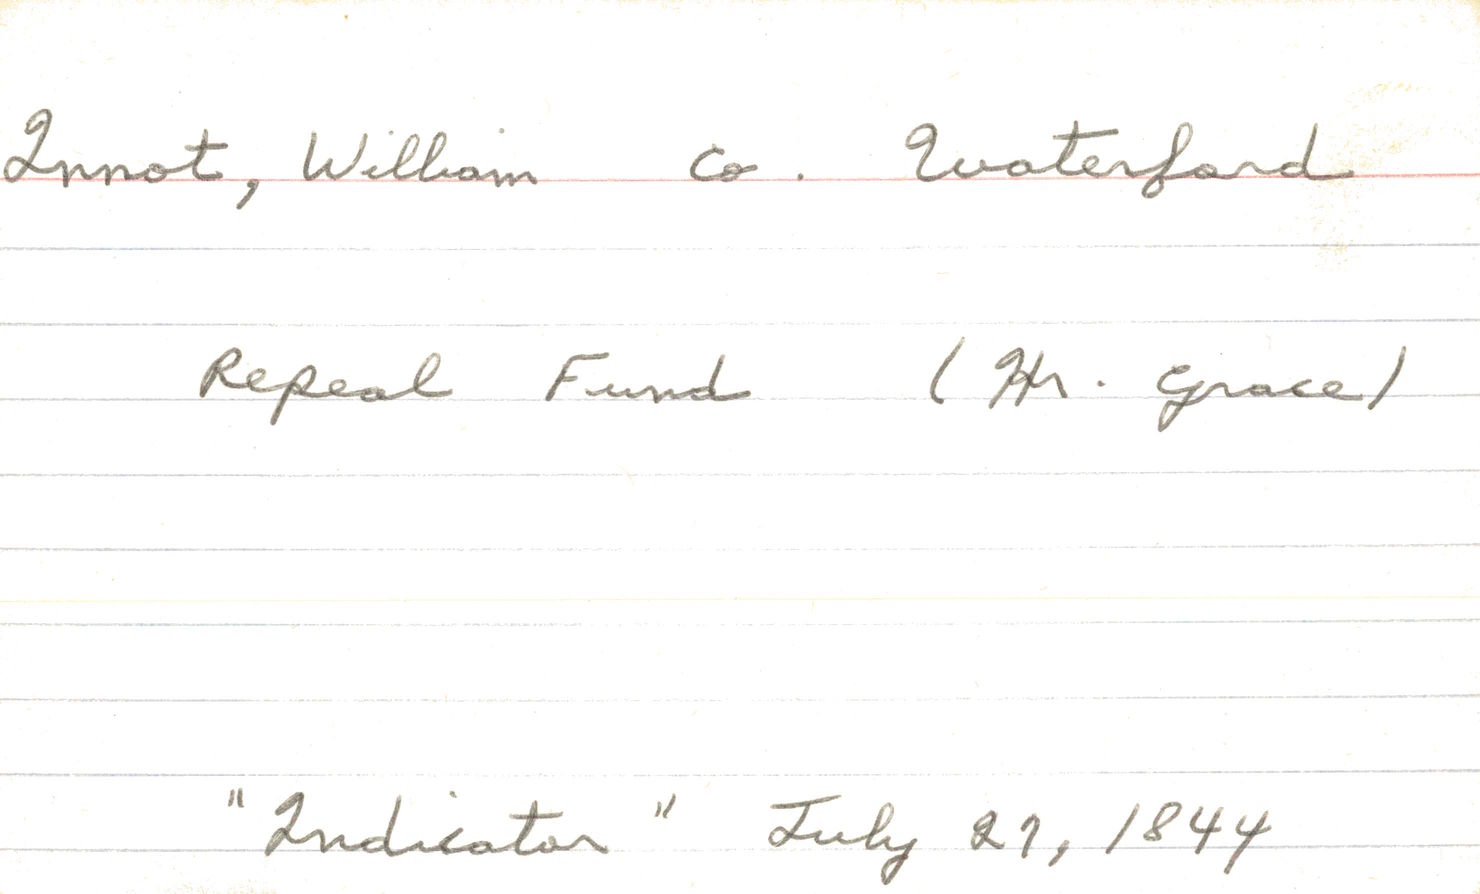 Innot, William Co. Waterford
Repeal Fund (Hr. Grace)
"Indicator" July 27, 1844